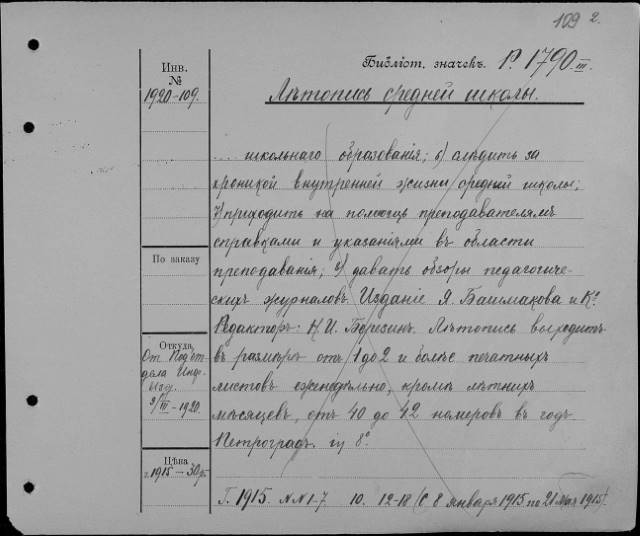 109 2.
Библіот. значекъ. Р. 1790 III.
Инв.
№
1920-109.
Лѣтопись средней школы.
... школьнаго образованія; б) слѣдить за
хроникой внутренней жизни средней школы;
7) приходить на помощь преподавателямъ
справками и указаніями въ области
По заказу
преподаванія; 8) давать обзоры педагогиче-
скихъ журналовъ. Изданіе Я. Башмакова и Ко.
Редакторъ: Н. И. Березинъ. Лѣтопись выходитъ
Откуда
От Подот-
дѣла
Изд.
9/III - 1920.
въ размѣрѣ отъ 1 до 2 и болѣе печатныхъ
листовъ еженедѣльно, кромѣ лѣтнихъ
мѣсяцевъ, отъ 40 до 42 номеровъ въ годъ
Петроградъ. in 8º.
Цѣна
г. 1915 - 30 р.
Г. 1915. NN 1-7 10. 12-18 (с 8 января 1915 по 21 мая 1915).